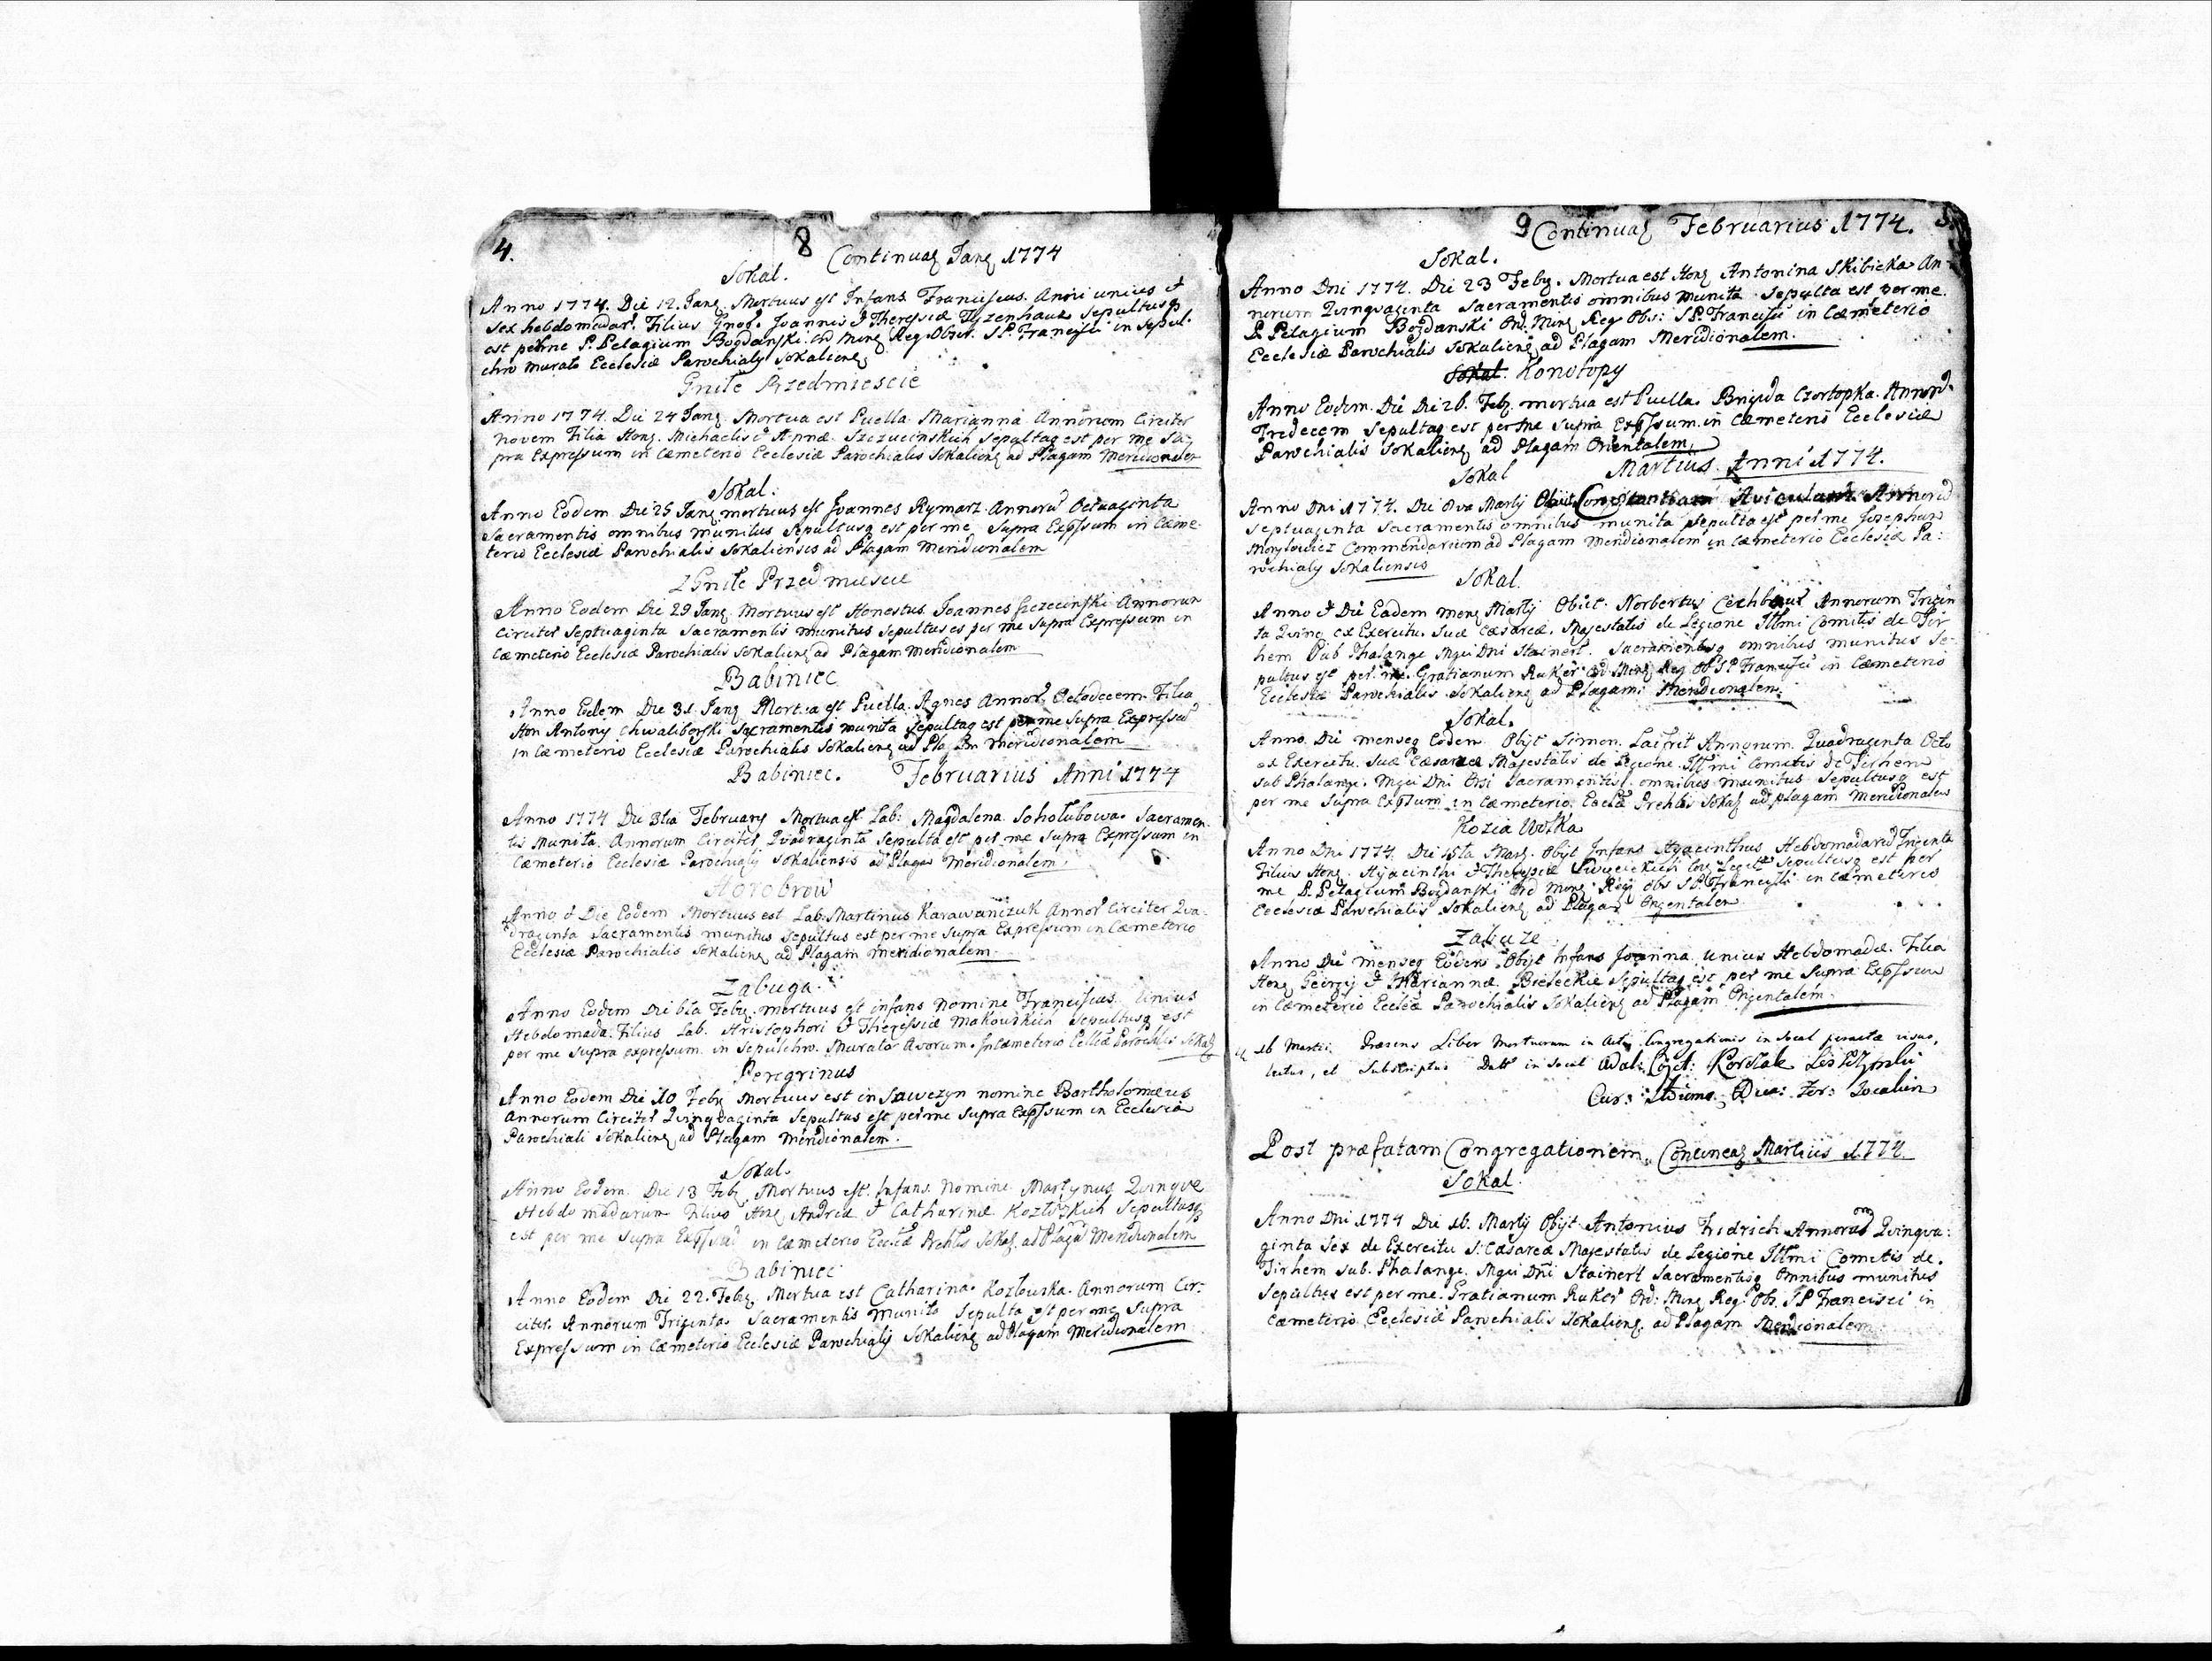 4.
8
Continuaõ Janȝ 1774
Sokal.
Anno 1774. Die 12. Janȝ. Mortuus est Infans Franciscus Anni unius et
sex hebdomadar. Filius Gnos. Joannis et Theressiæ Tyzenhauz sepultusq
est per me P. Pelagium Bogdanski Ord Minȝ Reg. Obser. S.P. Francisci in sepul-
chro murato Ecclesiæ Parochialis Sokalienȝ
Gniłe Przedmiescie
Anno 1774. Die 24 Janȝ. Mortua est Puella Marianna Annorum Circiter
novem Filia Honȝ. Michaelis et Annæ Szczucinskich sepultaq est per me Su-
pra Expressum in Cæmeterio Ecclesiæ Parochialis Sokalienȝ ad Plagam Meridionalem
Sokal.
Anno Eodem. Die 25 Janȝ mortuus est Joannes Rymarz Annorũ Octuaginta
Sacramentis omnibus munitus Sepultusq est per me Supra Expssum in Cæme-
terio Ecclesiæ Parochialis Sokaliensis ad Plagam Meridionalem
Gniłe Przedmiescie
Anno Eodem Die 29 Janȝ. Mortuus est Honestus Joannes Szczecinski Annorum
circiter Septuaginta Sacramentis munitus Sepultus es per me Supra Expressum in
Cæmeterio Ecclesiæ Parochialis Sokalienȝ ad Plagam Meridionalem
Babiniec
Anno Eodem Die 31. Janȝ Mortua est Puella Agnes Annor. Octodecem Filia
Hon Antony Chwaliborski Sacramentis munita Sepultaq est per me Supra Expressũ
in Cæmeterio Ecclesiæ Parochialis Sokalienȝ ad Plagam Meridionalem
Babiniec. Februarius Anni 1774
Anno 1774 Die 3tia February Mortua est Lab: Magdalena Sohołubowa Sacramen-
tis Munita. Annorum Circiter Quadraginta Sepulta est per me Supra Expressum in
Cæmeterio Ecclesiæ Parochialy Sokaliensis ad Plagam Meridionalem.
Horobrow
Anno et Die Eodem Mortuus est Lab. Martinus Karawanczuk Annor Circiter Qua-
draginta Sacramentis munitus Sepultus est per me Supra Expressum in Cæmeterio
Ecclesiæ Parochialis Sokalienȝ ad Plagam Meridionalem.
Zabuga.
Anno Eodem Die 6ta Febȝ. mortuus est infans Nomine Franciscus Unius
Hebdomadæ. Filius Lab. Hristophori et Theressiæ Makowskich Sepultusq est
per me Supra expressum in Sepulchro Murato Avorum. In Cæmeterio Ecclæ Parochlis Sokalȝ
Peregrinus
Anno Eodem Die 10 Febȝ Mortuus est in Sawczyn nomine Bartholomæus
Annorum Circiter Quinquaginta Sepultus est per me Supra Expssum in Ecclesia
Parochiali Sokalienȝ ad Plagam Meridionalem.
Sokal.
Anno Eodem. Die 18 Febȝ. Mortuus est Infans Nomine Martynus Quinque
Hebdomadarum Filius Honȝ Andreæ et Catharinæ Kozłowskich Sepultusq
est per me Supra Expssũ in Cæmeterio Ecclæ Prchlis Sokalȝ ad Plagã Meridionalem
Babiniec
Anno Eodem Die 22. Febȝ. Mortua est Catharina Kozłowska Annorum Cir-
citer Annorum Triginta Sacramentis munita Sepulta est per me Supra
Expressum in Cæmeterio Ecclesiæ Parochialy Sokalienȝ ad Plagam Meridionalem
9 Continuaõ Februarius 1774. 5.
Sokal.
Anno Dni 1774. Die 23 Febȝ. Mortua est Honȝ Antonina Skibicka An-
norum Quinquaginta Sacramentis omnibus munita. Sepulta est per me
P. Pelagium Bogdanski Ord. Minȝ Reg Obs: S.P. Francisci in Cæmeterio
Ecclesiæ Parochialis Sokalienȝ ad Plagam Meridionalem.
Sokal. Konotopy
Anno Eodem. Die Die 26. Febȝ mortua est Puella Brigida Czortopka. Annorũ
Tredecem Sepultaq est per me Supra Expssum in Cæmeterio Ecclesiæ
Parochialis Sokalienȝ ad Plagam Orientalem.
Sokal Martius Anni 1774.
Anno Dni 1774. Die 8va Martij Obiit Annorũ
Septuaginta Sacramentis omnibus munita sepulta est per me Josephum
Commendarium ad Plagam Meridionalem in Cæmeterio Ecclesiæ Pa:
rochialy Sokaliensis
Sokal.
Anno et Die Eadem Menȝ Martij Obiit. Norbertus Annorum Trigin
ta Quinq ex Exercitu. Suæ Cæsareæ Majestatis de Legione Illmi Comitis de Tir
hem Sub Phalange Mgni Dni Stainert. Sacramentisq omnibus munitus Se-
pultus est per me Gratianum Ruker Ord. Minȝ Reg Obs S.P. Francisci in Cæmeterio
Ecclesiæ Parochialis Sokalienȝ ad Plagam Meridionalem.
Sokal.
Anno Die menseq Eodem Obijt Simon Laifrit Annorum Quadraginta Octo
ex Exercitu. Suæ Cæsareæ Majestatis de Legione Illmi Comitis de Tirhem
sub Phalange. Mgni Dni Orsi Sacramentisq omnibus munitus Sepultusq est
per me Supra Expssum in Cæmeterio. Ecclæ Prchlis Sokalȝ ad plagam Meridionalem
Kozia Wolka
Anno Dni 1774. Die 15ta Marȝ. Obijt Infans Hyacinthus Hebdomadarũ Triginta
Filius Honȝ. Hyacinthi et Theressiæ Legittȝ Sepultusq est per
me P. Pelagium Bogdanski Ord Minȝ Regȝ Obs S.P. Francisci in Cæmeterio
Ecclesiæ Parochialis Sokalienȝ ad Plagam Orientalem
Zabuze
Anno Die menseq Eodem Obijt Infans Joanna Unius Hebdomadæ Filia
Honȝ Georgij et Mariannæ Bieleckie Sepultaq est per me Supra Expssum
in Cæmeterio Ecclæ Parochialis Sokalienȝ ad Plagam Orientalem.
16 Martii Præsens Liber Mortuorum in Actu Congregationis in Socal peractæ visus,
lectus, et Subscriptus Datt in Socal Adal:
Post præfatam Congregationem Continuaõ Martius 1774
Sokal.
Anno Dni 1774 Die 16. Martij Obijt Antonius Fridrich Annorum Quinqua:
ginta Sex de Exercitu S: Cæsareæ Majestatis de Legione Illmi Comitis de.
Tirhem sub. Phalange. Mgni Dni Stainert Sacramentisq Omnibus munitus
Sepultus est per me Gratianum Ruker Ord: Minȝ Reg: Obs. S P Francisci in
Cæmeterio Ecclesiæ Parochialis Sokalienȝ. ad Plagam Meridionalem.